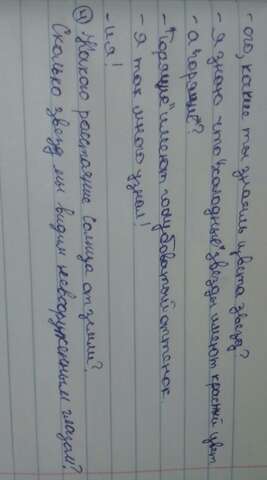 - ого, какие ты знаешь цвета звезд?
- я знаю что "холодные" звезды имеют красный цвет
- а "горящие"?
- "Горящие" имеют голубоватый оттенок.
- я так много узнал!
- и я!
④ Какого расстояние Солнца от земли?
Сколько звезд мы видим невооруженным глазом?